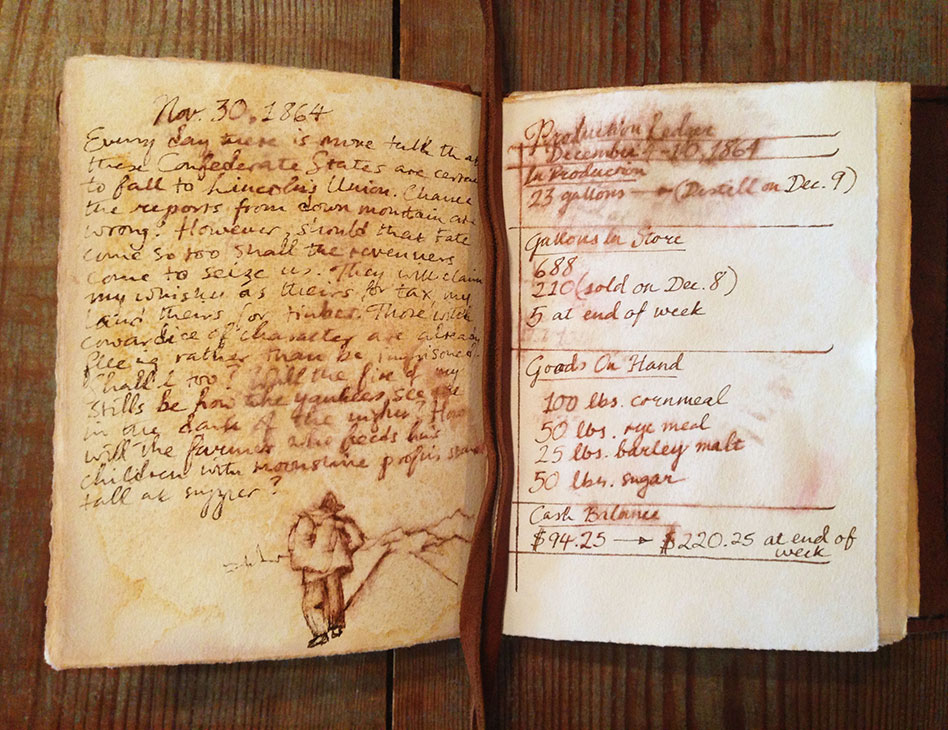 Nov. 30, 1864
Every day there is more talk that
these Confederate States are certain
to fall to Lincoln's Union. Chance
the reports from down mountain are
wrong? However, should that fate
come so too shall the revenuers
come to seize us. They will claim
my whiskey as theirs for tax, my
land theirs for timber. Those with
cowardice of character are already
fleeing rather than be imprisoned.
Shall I too? Will the fire of my
stills be how the Yankees see me
in the dark of the night? How
will the farmer who feeds his
children with moonshine profits stand
tall at supper?
Production Ledger
December 4-10, 1864
In Production
23 gallons → (Distill on Dec. 9)
Gallons In Store
688
210 (sold on Dec. 8)
5 at end of week
Goods On Hand
100 lbs. cornmeal
50 lbs. rye meal
25 lbs. barley malt
50 lbs. sugar
Cash Balance
$94.25 → $220.25 at end of
week